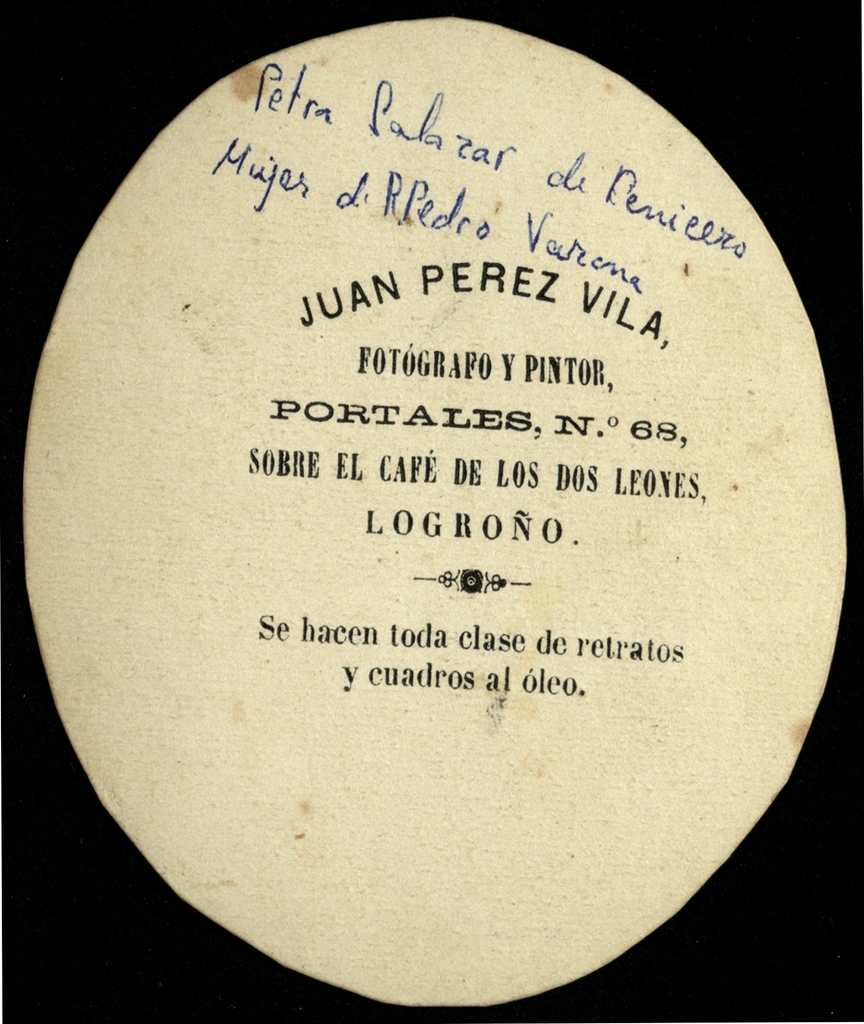 Petra Salazar de Cenicero
Mujer de R. Pedro Varona
JUAN PEREZ VILA,
FOTÓGRAFO Y PINTOR,
PORTALES, N.º 68,
SOBRE EL CAFÉ DE LOS DOS LEONES,
LOGROÑO.
Se hacen toda clase de retratos
y cuadros al óleo.